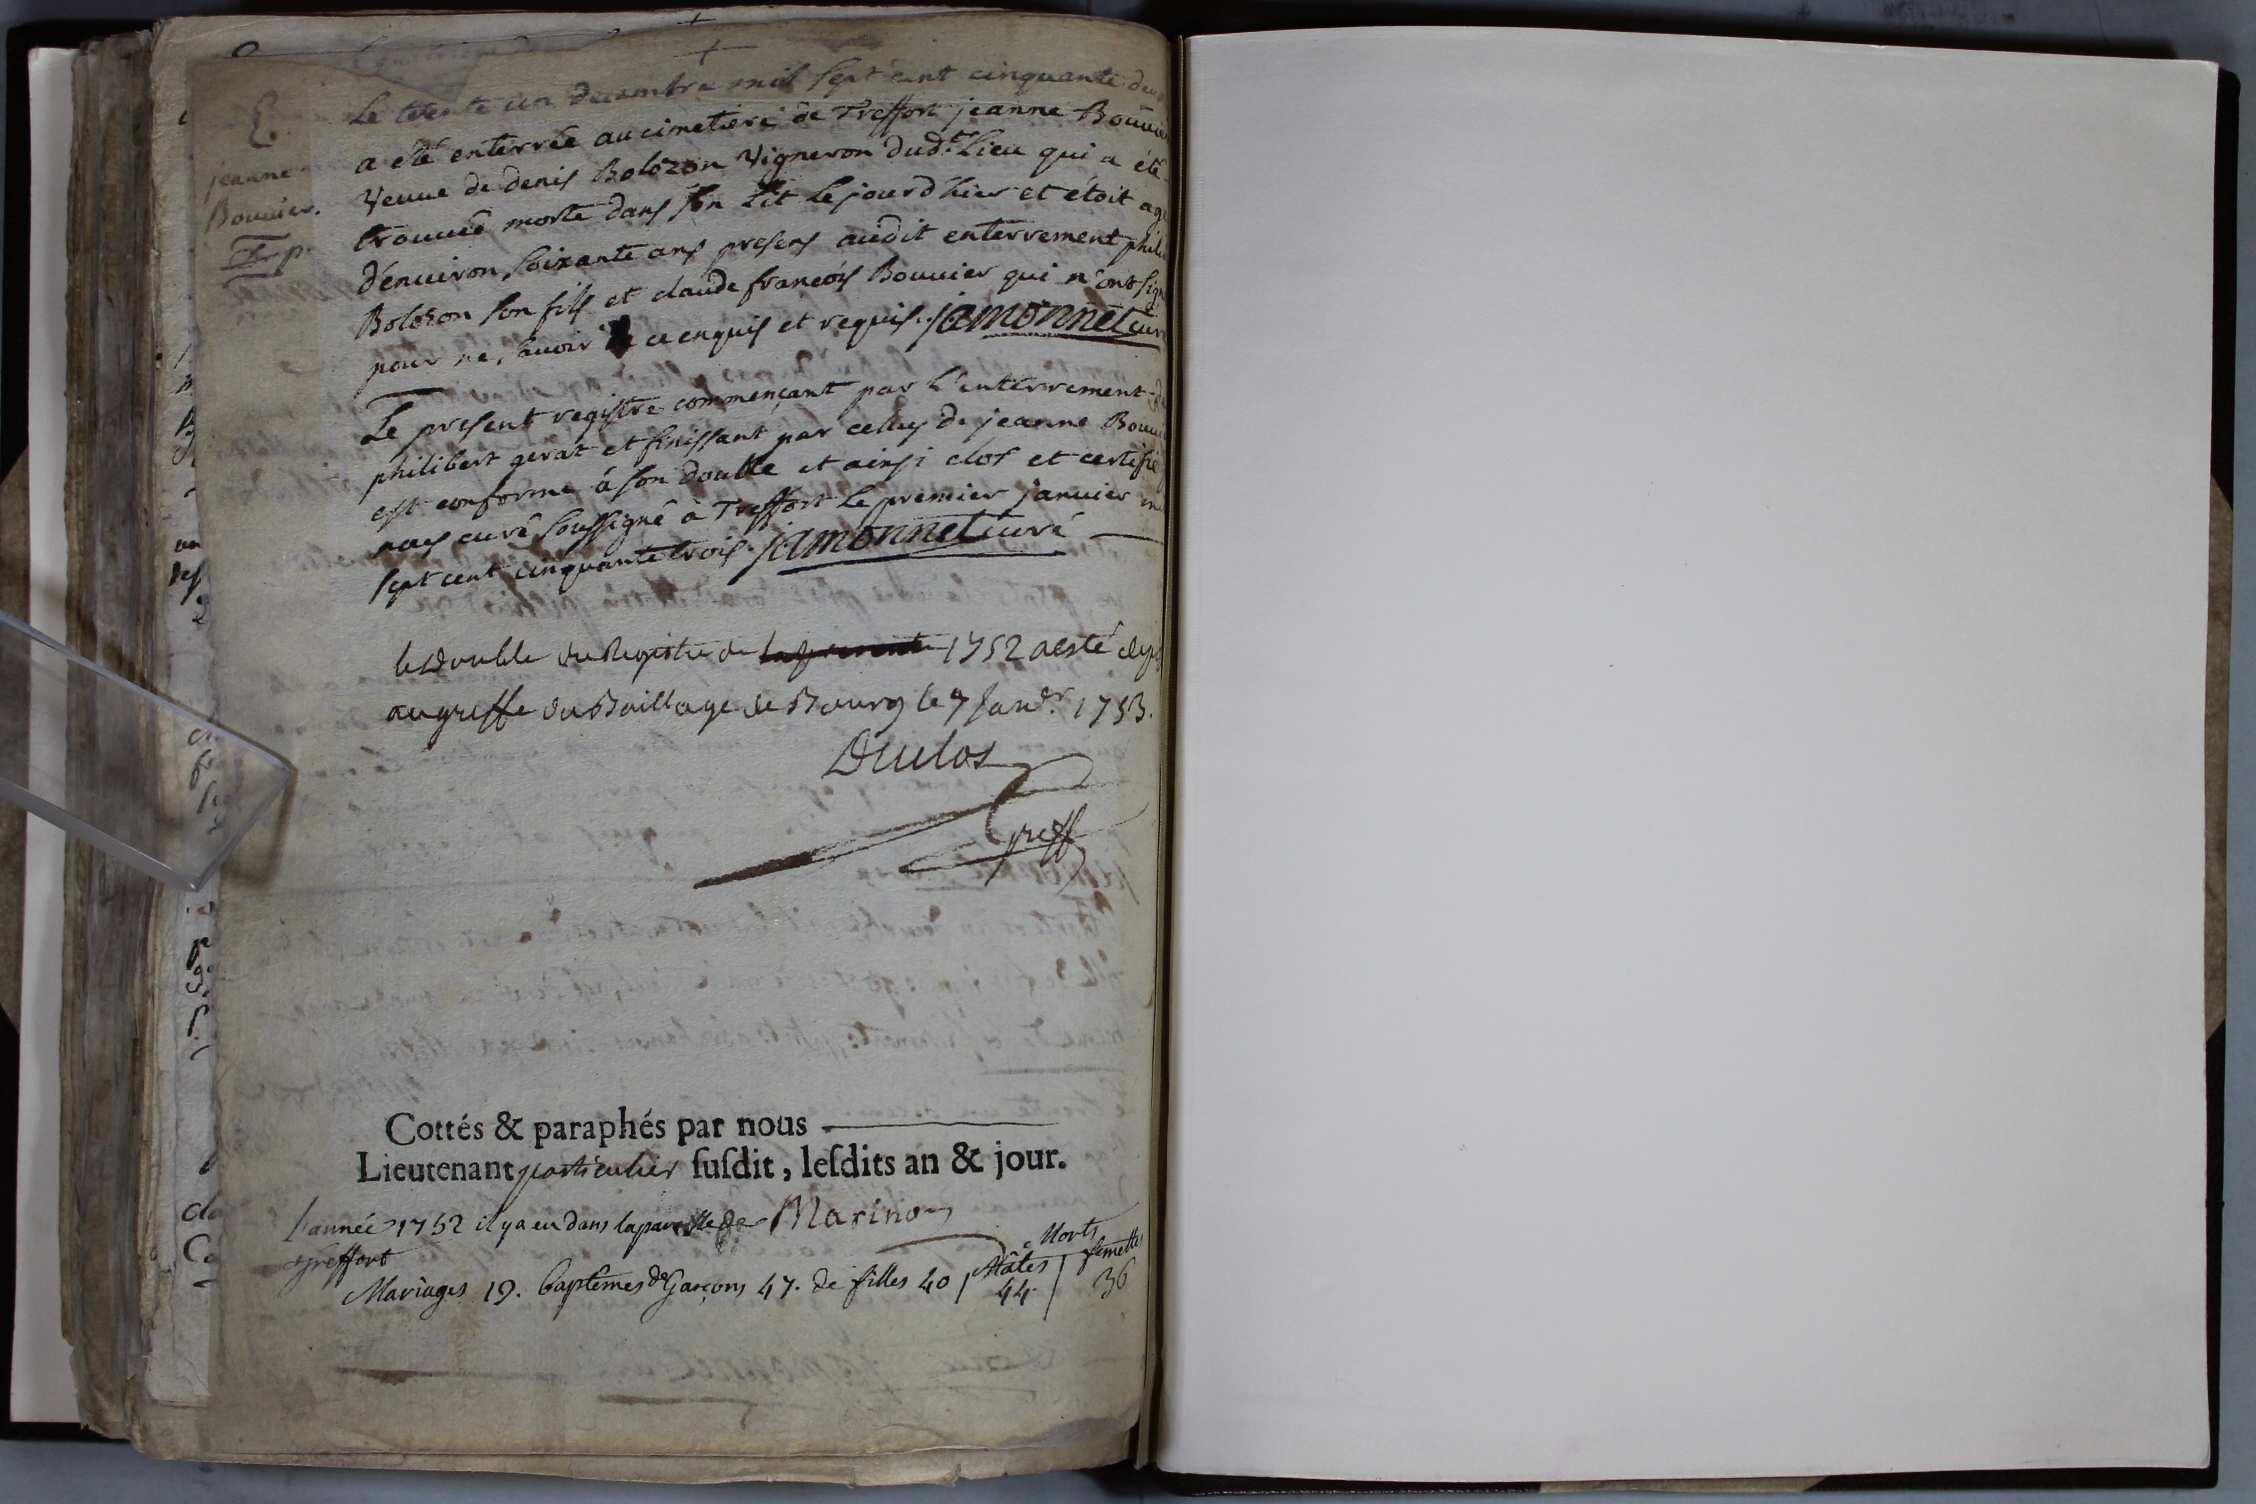 E.
jeanne
Bouuier.
Le trente un decembre mil sept cent cinquante deux
a été enterrée au cimetiere de Treffort jeanne Bouuier
Veuue de denis Bolozon Vigneron dud.t Lieu qui a été
trouuée morte dans son Lit Le jourd'hier et étoit agé
d'enuiron soixante ans presens audit enterrement phili
Bolozon son fils et claude francois Bouuier qui n'ont sign
pour ne sauoir de ce enquis et requis. jamonnet curé
Le present registre commençant par L'enterrement de
philibert gerat et finissant par celuy de jeanne Bouui
est conforme á son double et ainsi clos et certifié
nous curé soussigné à Treffort Le premier januier mil
sept cent cinquante trois. jamonnet curé
le double du Registre de 1752 a esté dep
au greffe du Baillage de Bourg le 7 Janer. 1753.
Duclos
Greff
Cottés & paraphés par nous
Lieutenant particulier ſuſdit, leſdits an & jour.
L'année 1752 il y a eu dans la paroisse de Marinon
treffort
Morts
Mariages 19. baptêmes de Garçons 47. de filles 40 | Mâles 44 | femelles 36